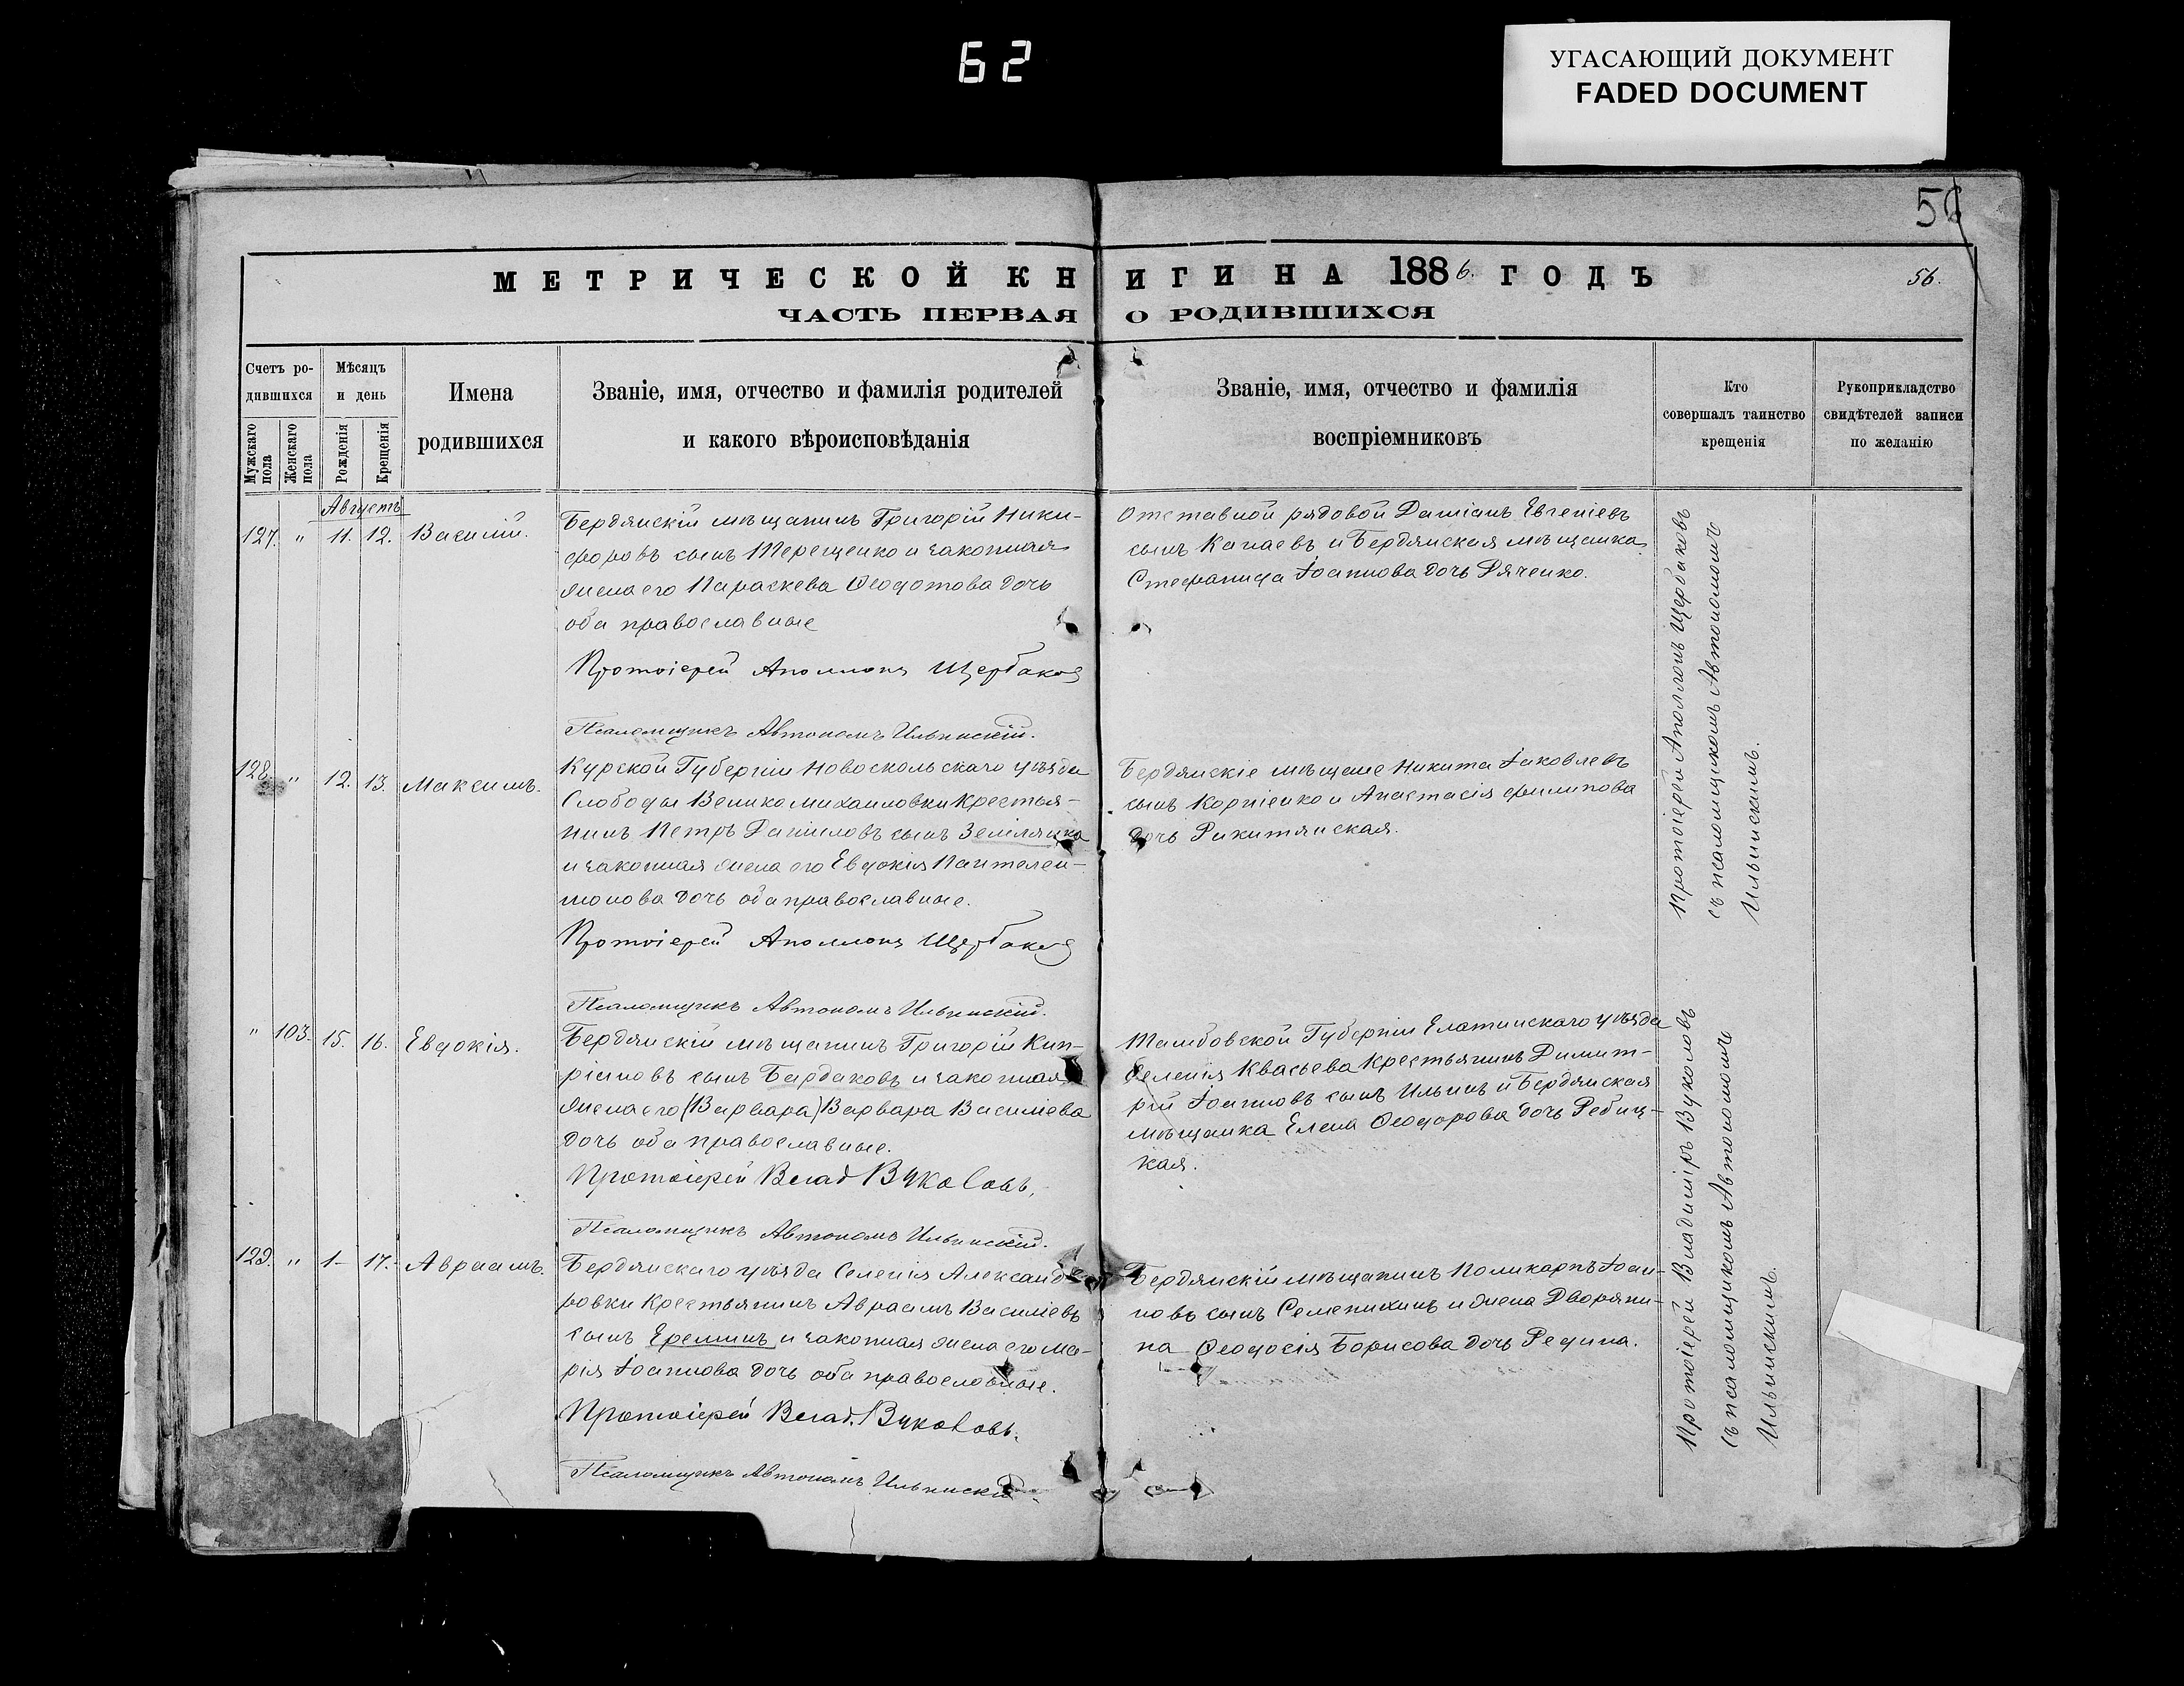 62
УГАСАЮЩИЙ ДОКУМЕНТ
FADED DOCUMENT
56
МЕТРИЧЕСКОЙ КНИГИ НА 1886. ГОДЪ
56.
ЧАСТЬ ПЕРВАЯ О РОДИВШИХСЯ
Счетъ родившихся
Мужскаго пола
Женскаго пола
Мѣсяцъ и день
Рожденія
Крещенія
Имена родившихся
Званіе, имя, отчество и фамилія родителей
и какого вѣроисповѣданія
Званіе, имя, отчество и фамилія
воспріемниковъ
Кто
совершалъ таинство
крещенія
Рукоприкладство
свидѣтелей записи
по желанію
Августъ
127. " 11. 12. Василій.
Бердянскій мѣщанинъ Григорій Ники-
форовъ сынъ Терещенко и законная
жена его Параскева Ѳеодотова дочь
оба православные
Протоіерей Аполлонъ Щербаковъ
Псаломщикъ Автономъ Ильинскій.
Отставной рядовой Даміанъ Евгеніевъ
сынъ Капаевъ и Бердянская мѣщанка
Стефанида Іоаннова дочь Дяченко.
Протоіерей Аполлонъ Щербаковъ
съ псаломщикомъ Автономомъ
Ильинскимъ.
128. " 12. 13. Максимъ.
Курской Губерніи Новоскольскаго уѣзда
Слободы Велико михаиловки Крестья-
нинъ Петръ Даніиловъ сынъ Землянка
и законная жена его Евдокія Пантелеи-
монова дочь оба православные.
Протоіерей Аполлонъ Щербаковъ
Псаломщикъ Автономъ Ильинскій.
Бердянскіе мѣщане Никита Іаковлевъ
сынъ Корніенко и Анастасія Филипова
дочь Рикитянская.
" 103. 15. 16. Евдокія.
Бердянскій мѣщанинъ Григорій Кип-
ріановъ сынъ Бардаковъ и законная
жена его (Варвара) Варвара Василіева
дочь оба православные.
Протоіерей Влад Вуколовъ.
Псаломщикъ Автономъ Ильинскій.
Тамбовской Губерніи Елатинскаго уѣзда
Селенія Квасьева Крестьянинъ Димит-
рій Іоанновъ сынъ Ильинъ и Бердянская
мѣщанка Елена Ѳеодорова дочь Ребиц-
кая.
Протоіерей Владиміръ Вуколовъ
съ псаломщикомъ Автономомъ
Ильинскимъ.
129. " 1- 17.- Авраамъ.
Бердянскаго уѣзда Селенія Александ-
ровки Крестьянинъ Авраамъ Василіевъ
сынъ Ереминъ и законная жена его Ма-
рія Іоаннова дочь оба православные.
Протоіерей Влад. Вуколовъ.
Псаломщикъ Автономъ Ильинскій.
Бердянскій мѣщанинъ Поликарпъ Іоан-
новъ сынъ Семенихинъ и жена Дворяни-
на Ѳеодосія Борисова дочь Редина.